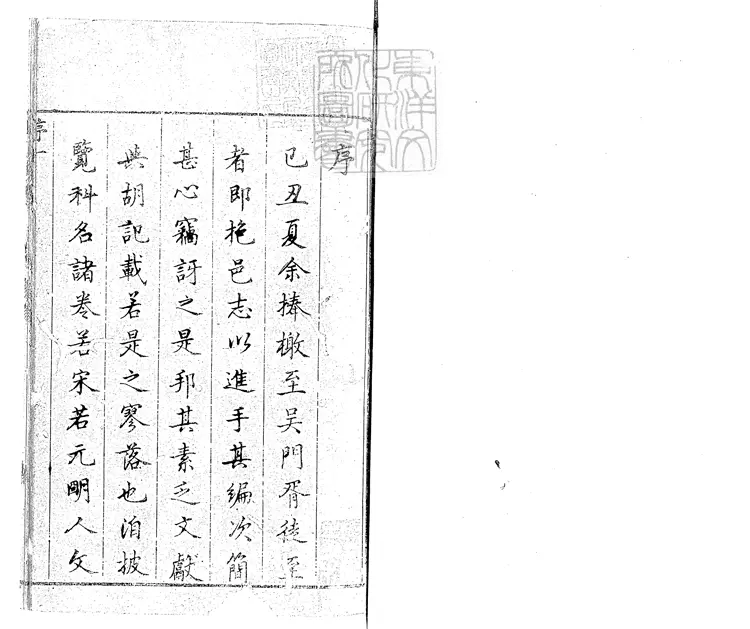 序
已丑夏余捧檄至吴門胥徒至
者即抱邑志以進手其編次簡
甚心竊訝之是邦其素乏文獻
與胡記載若是之寥落也洎披
覽科名諸卷若宋若元明人文
序一